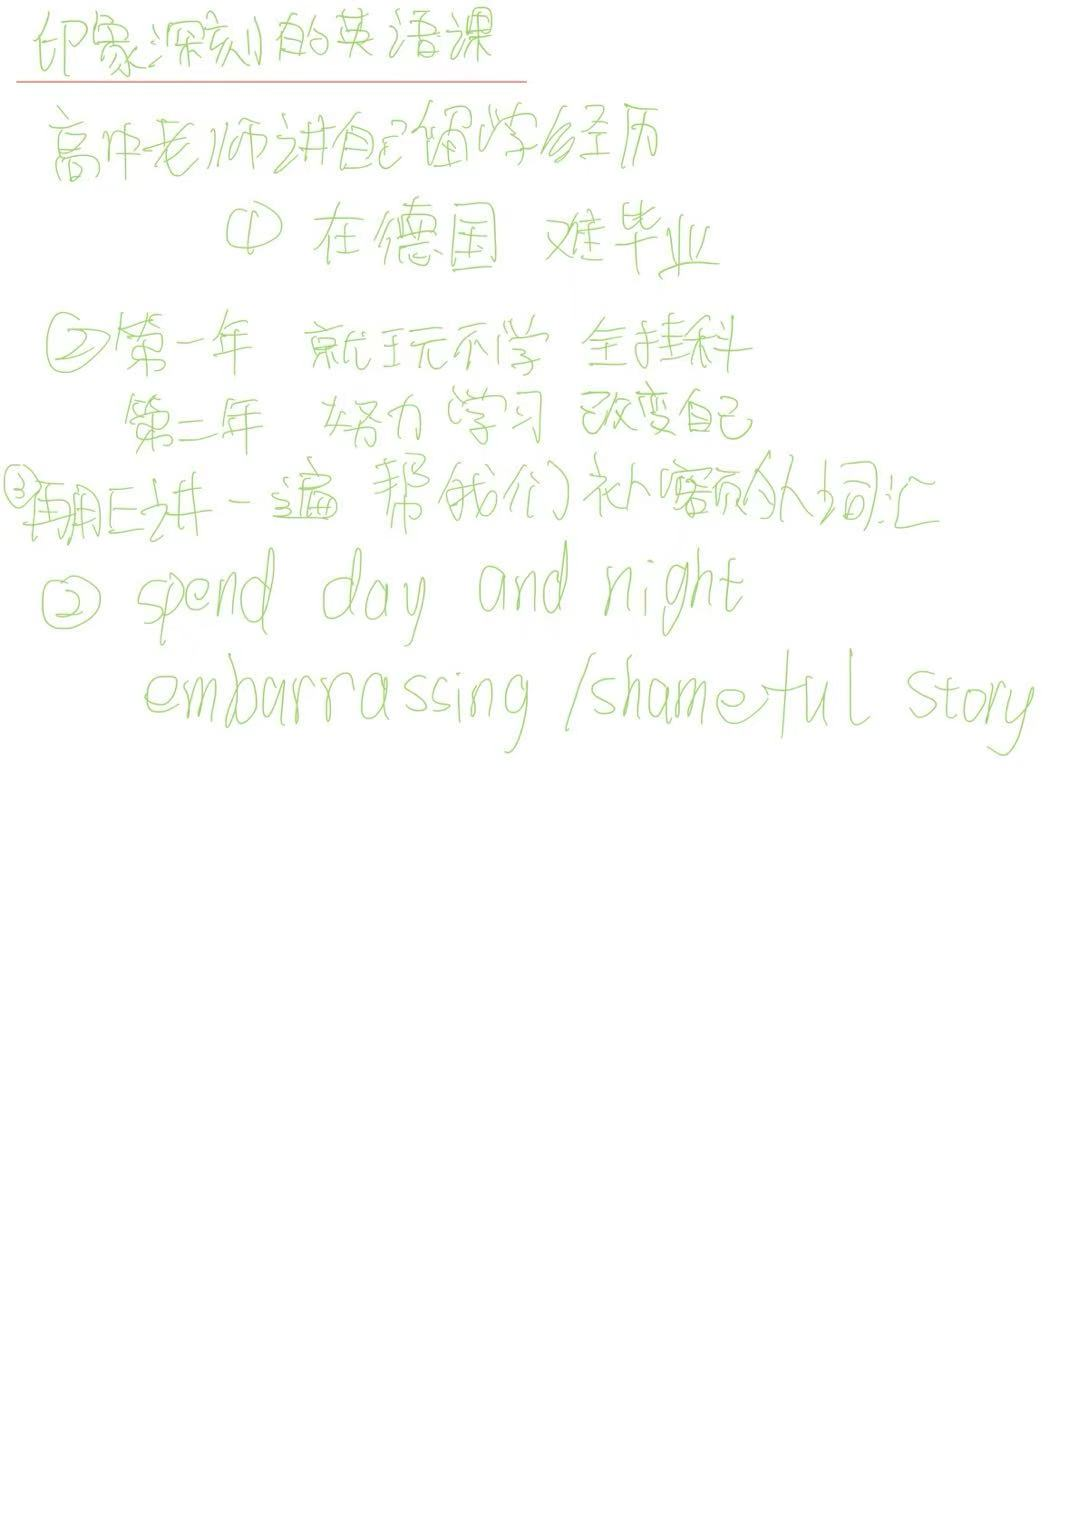 印象深刻的英语课
高中老师讲自己留学经历
① 在德国 难毕业
② 第一年 就玩不学 全挂科
第二年 努力学习 改变自己
③ 讲一遍 帮我们补 额外词汇
② spend day and night
embarrassing /shameful story